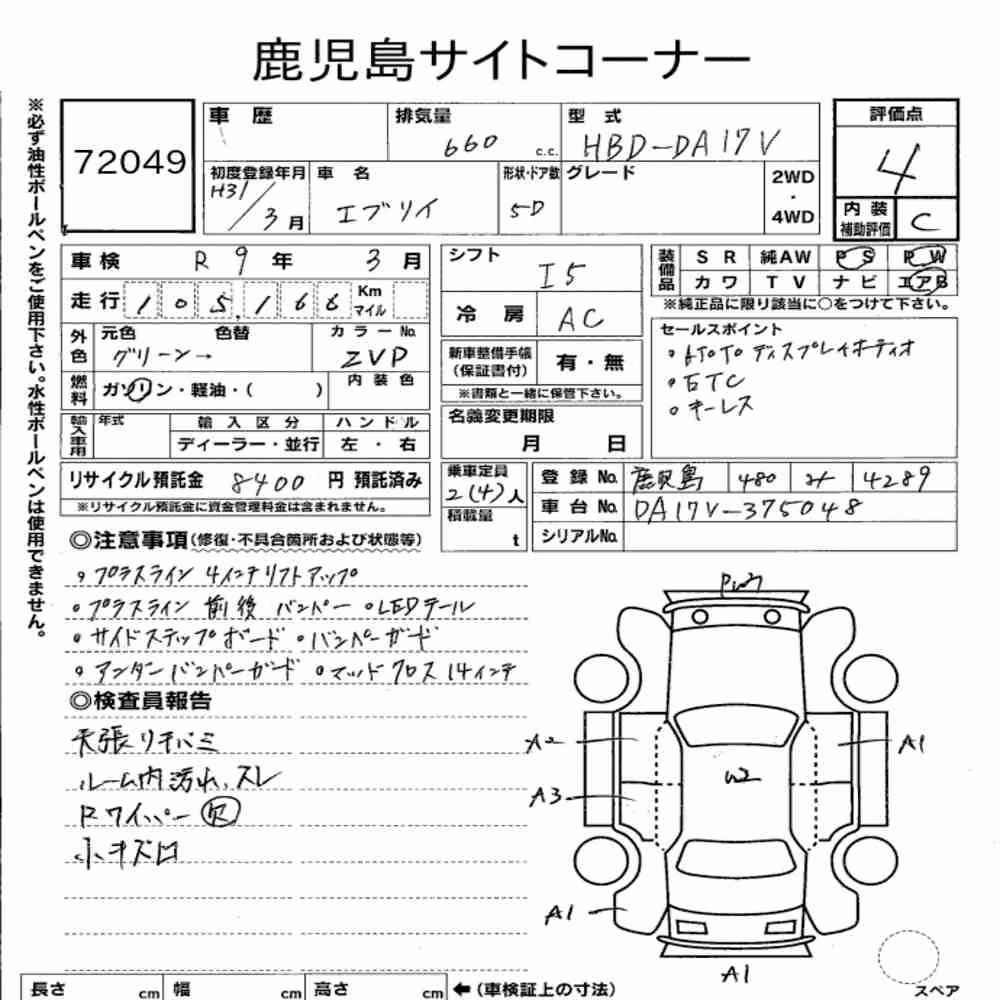 鹿児島サイトコーナー
※必ず油性ボールペンをご使用下さい。水性ボールペンは使用できません。
72049
車歴
排気量 660 c.c.
型式 HBD-DA17V
評価点
4
内装補助評価 C
初度登録年月 H31/3月
車名 エブリイ
形状・ドア数 5D
グレード
2WD・4WD
車検 R9年 3月
走行 105,166 Km マイル
シフト I5
冷房 AC
装備品 SR 純AW PS PW
カワ TV ナビ エアB
※純正品に限り該当に○をつけて下さい。
外色 元色 グリーン→ 色替
カラーNo. ZVP
燃料 ガソリン・軽油・( )
内装色
新車整備手帳(保証書付) 有・無
※書類と一緒に保管下さい。
セールスポイント
ディスプレイオーディオ
・ETC
・キーレス
輸入車用 年式
輸入区分 ディーラー・並行
ハンドル 左・右
名義変更期限
月 日
リサイクル預託金 8400 円 預託済み
※リサイクル預託金に資金管理料金は含まれません。
乗車定員 2(4)人
積載量 t
登録No. 鹿児島 480 4289
車台No. DA17V-375048
シリアルNo.
◎注意事項(修復・不具合箇所および状態等)
・プラスライン 4インチリフトアップ
・プラスライン 前後 バンパー ・LEDテール
・サイドステップボード ・バンパーガード
・アンダーバンパーガード ・マッドクロス 14インチ
◎検査員報告
天張リキバミ
ルーム内汚れ、スレ
Rワイパー欠
小キズロ
A2
A1
A3
W2
A1
A1
長さ cm 幅 cm 高さ cm ←(車検証上の寸法)
スペア